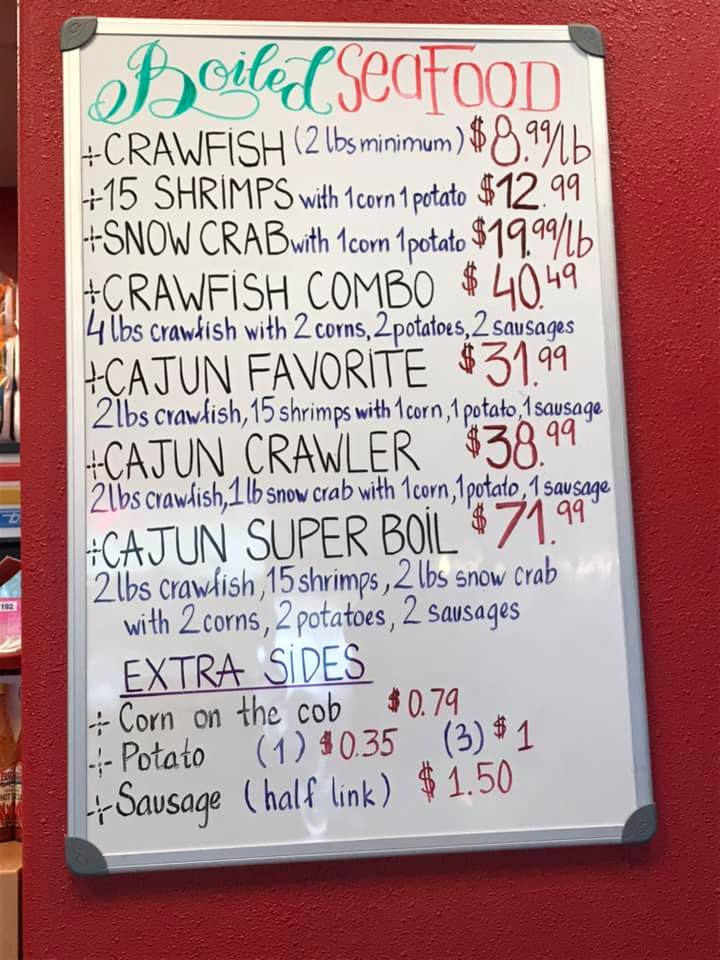 Boiled SEAFOOD
+CRAWFISH (2 lbs minimum) $8.99/lb
+15 SHRIMPS with 1 corn 1 potato $12.99
+SNOW CRAB with 1 corn 1 potato $19.99/lb
+CRAWFISH COMBO $40.49
4 lbs crawfish with 2 corns, 2 potatoes, 2 sausages
+CAJUN FAVORITE $31.99
2 lbs crawfish, 15 shrimps with 1 corn, 1 potato, 1 sausage
+CAJUN CRAWLER $38.99
2 lbs crawfish, 1 lb snow crab with 1 corn, 1 potato, 1 sausage
+CAJUN SUPER BOIL $71.99
2 lbs crawfish, 15 shrimps, 2 lbs snow crab
with 2 corns, 2 potatoes, 2 sausages
EXTRA SIDES
+ Corn on the cob $0.79
+ Potato (1) $0.35 (3) $1
+ Sausage (half link) $1.50
192